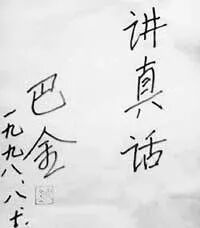 讲真话
巴金
一九九八、八、